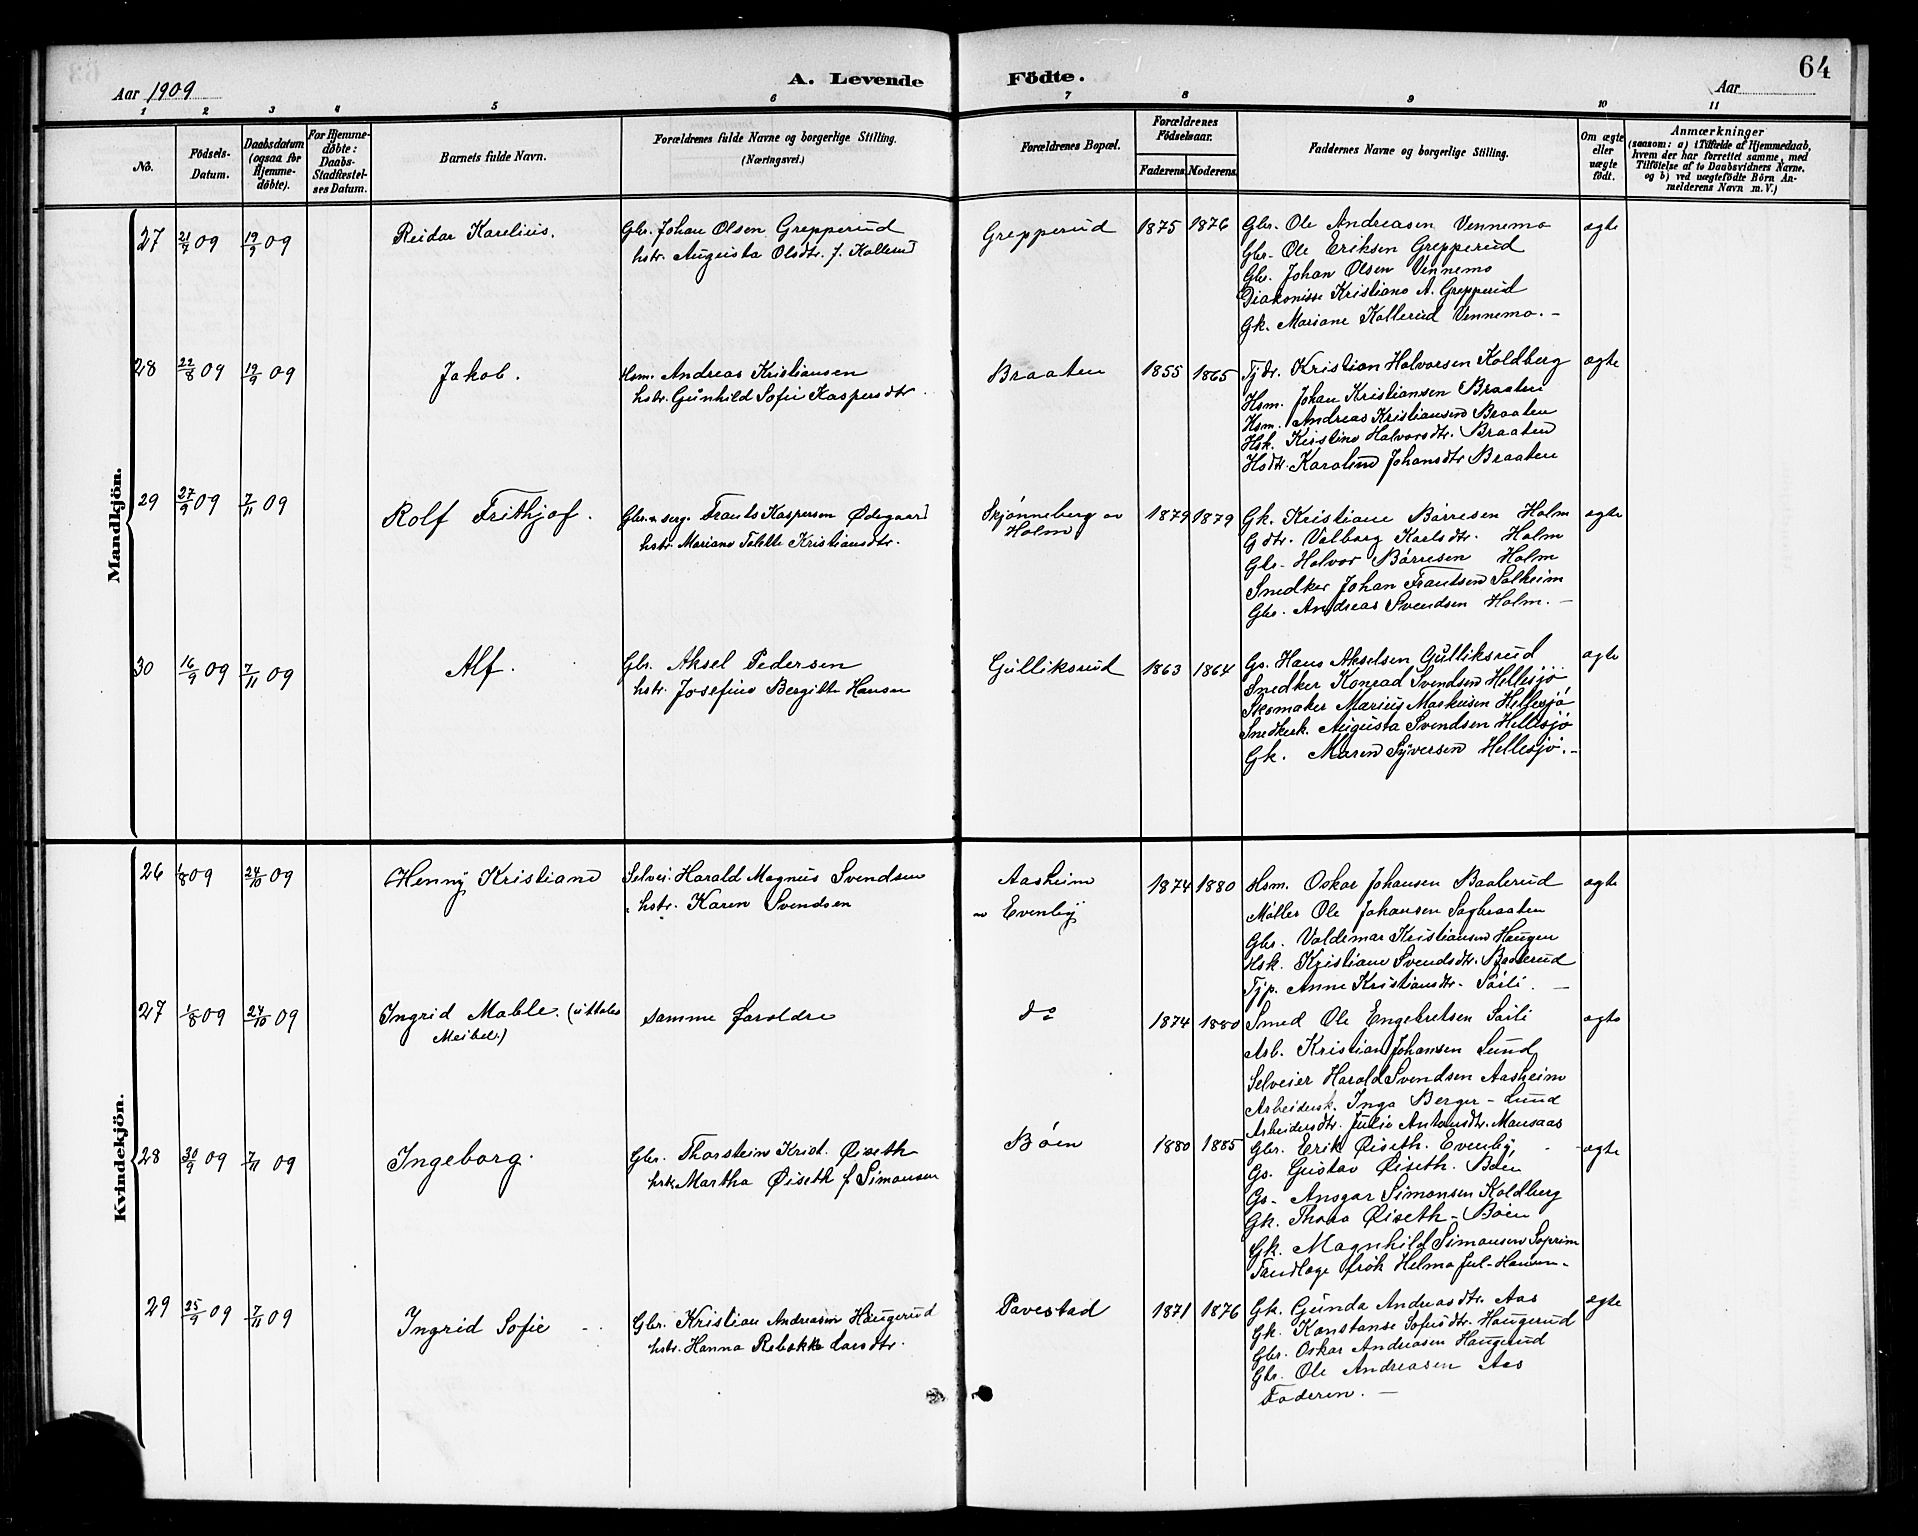 64
Aar 1909
A. Levende Födte.
Aar
1 2 3 4 5 6 7 8 9 10 11
No.
Födsels-Datum.
Daabsdatum (ogsaa for Hjemmedöbte).
For Hjemmedöbte: Daabs-Stadfæstelses Datum.
Barnets fulde Navn.
Forældrenes fulde Navne og borgerlige Stilling.
(Næringsvei.)
Forældrenes Bopæl.
Forældrenes Födselsaar.
Faderens. Moderens.
Faddernes Navne og borgerlige Stilling.
Om ægte eller uægte födt.
Anmærkninger
(saasom: a) i Tilfælde af Hjemmedaab,
hvem der har forrettet samme, med
Tilföielse af to Daabsvidners Navne,
og b) ved uægtefödte Börn An-
melderens Navn m. V.)
Mandkjön.
27 21/7 09 19/9 09 Reidar Karelius. Gbr. Johan Olsen Grepperud Grepperud 1875 1876 Gbr. Ole Andreasen Vennemo ægte
hstr. Augusta Olsdtr. f. Kollerud Gbr. Ole Eriksen Grepperud
Gbr. Johan Olsen Vennemo
Diakonisse Kristiane A. Grepperud
Gk. Mariane Kollerud Vennemo. -
28 22/8 09 19/9 09 Jakob. Hsm. Andreas Kristiansen Braaten 1855 1865 Tjdr. Kristian Halvorsen Koldberg ægte
hstr. Gunhild Sofie Kaspersdtr. Hsm. Johan Kristiansen Braaten
Hsm. Andreas Kristiansen Braaten
Hsk. Kristine Halvorsdtr. Braaten
Hsdtr. Karoline Johansdtr Braaten
29 27/9 09 7/11 09 Rolf Frithjof. Gbr. & serg. Frants Kaspersen Ødegaard Skjønneberg av 1879 1879 Gk. Kristiane Børresen Holm ægte
hstr. Mariane Kristiansdtr. Holm Gdtr. Valborg Karlsdtr. Holm
Gbr. Halvor Børresen Holm
Snedker Johan Frantsen Solheim
Gbr. Andreas Svendsen Holm. -
30 16/9 09 7/11 09 Alf. Gbr. Aksel Pedersen Gulliksrud 1863 1864 Gs. Hans Akselsen Gulliksrud ægte
hstr. Josefine Bergitte Hansen Snedker Konrad Svendsen Hellesjø
Skomaker Marius Markusen Hellesjø
Snedkerk. Augusta Svendsen Hellesjø
Gk. Maren Syversen Hellesjø. -
Kvindekjön.
26 1/8 09 24/10 09 Henny Kristiane Selvei. Harald Magnus Svendsen Aasheim 1874 1880 Hsm. Oskar Johansen Baalerud ægte
hstr. Karen Svendsen av Evenby Møller Ole Johansen Sagbraaten
Gbr. Valdemar Kristiansen Haugen
Hsk. Kristiane Svendsdtr. Baalerud
Tjp. Anne Kristiansdtr. Sørli. -
27 1/8 09 24/10 09 Ingrid Mable (uttales samme foreldre do 1874 1880 Smed Ole Engebretsen Sørli ægte
Meibel.) Arb. Kristian Johansen Lund
Selveier Harald Svendsen Aasheim
Arbeidersk. Inga Berger - Lund
Arbeidersdtr. Julie Antonsdtr. Mansaas
28 30/9 09 7/11 09 Ingeborg. Gbr. Thorstein Krist. Øiseth Bøen 1880 1885 Gbr. Erik Øiseth. Evenby, - ægte
hrk Martha Øiseth f Simonsen Gs. Gustav Øiseth. Bøen
Gs. Ansgar Simonsen Koldberg
Gk. Thora Øiseth - Bøen
Gk. Magnhild Simonsen
Tandlæge frøk Helma Jul-Hansen -
29 25/9 09 7/11 09 Ingrid Sofie Gbr. Kristian Andreasen Haugerud Pavestad 1871 1876 Gk. Gunda Andreasdtr. Aas ægte
hstr. Hanna Rebekke Larsdtr. Gk. Konstanse Sofusdtr. Haugerud
Gbr. Oskar Andreasen Haugerud
Gbr. Ole Andreasen Aas
Faderen. -